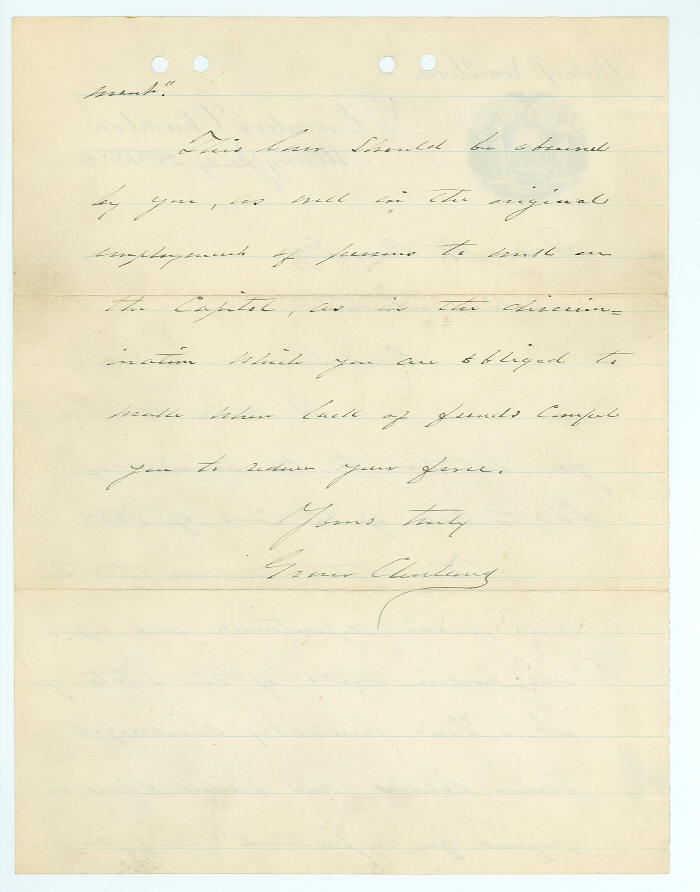 ment."
This law should be observed
by you, as well in the original
employment of persons to work on
the Capitol, as in the discrim=
ination which you are obliged to
make when lack of funds compel
you to reduce your force.
Yours truly
Grover Cleveland